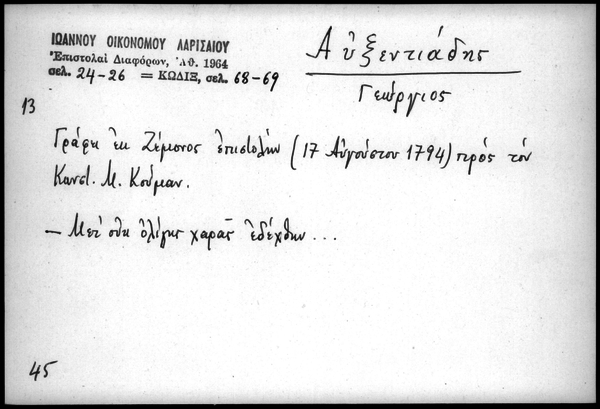 ΙΩΑΝΝΟΥ ΟΙΚΟΝΟΜΟΥ ΛΑΡΙΣΑΙΟΥ
Ἐπιστολαὶ Διαφόρων, Ἀθ. 1964
σελ. 24-26 = ΚΩΔΙΞ, σελ. 68-69
Αὐξεντιάδης
Γεώργιος
13
Γράφει ἐκ Ζέμονος ἐπιστολὴν (17 Αὐγούστου 1794) πρός τόν
Κωνστ. Μ. Κούμαν.
— Μετ' οὐκ ὀλίγης χαρᾶς ἐδέχθην ...
45